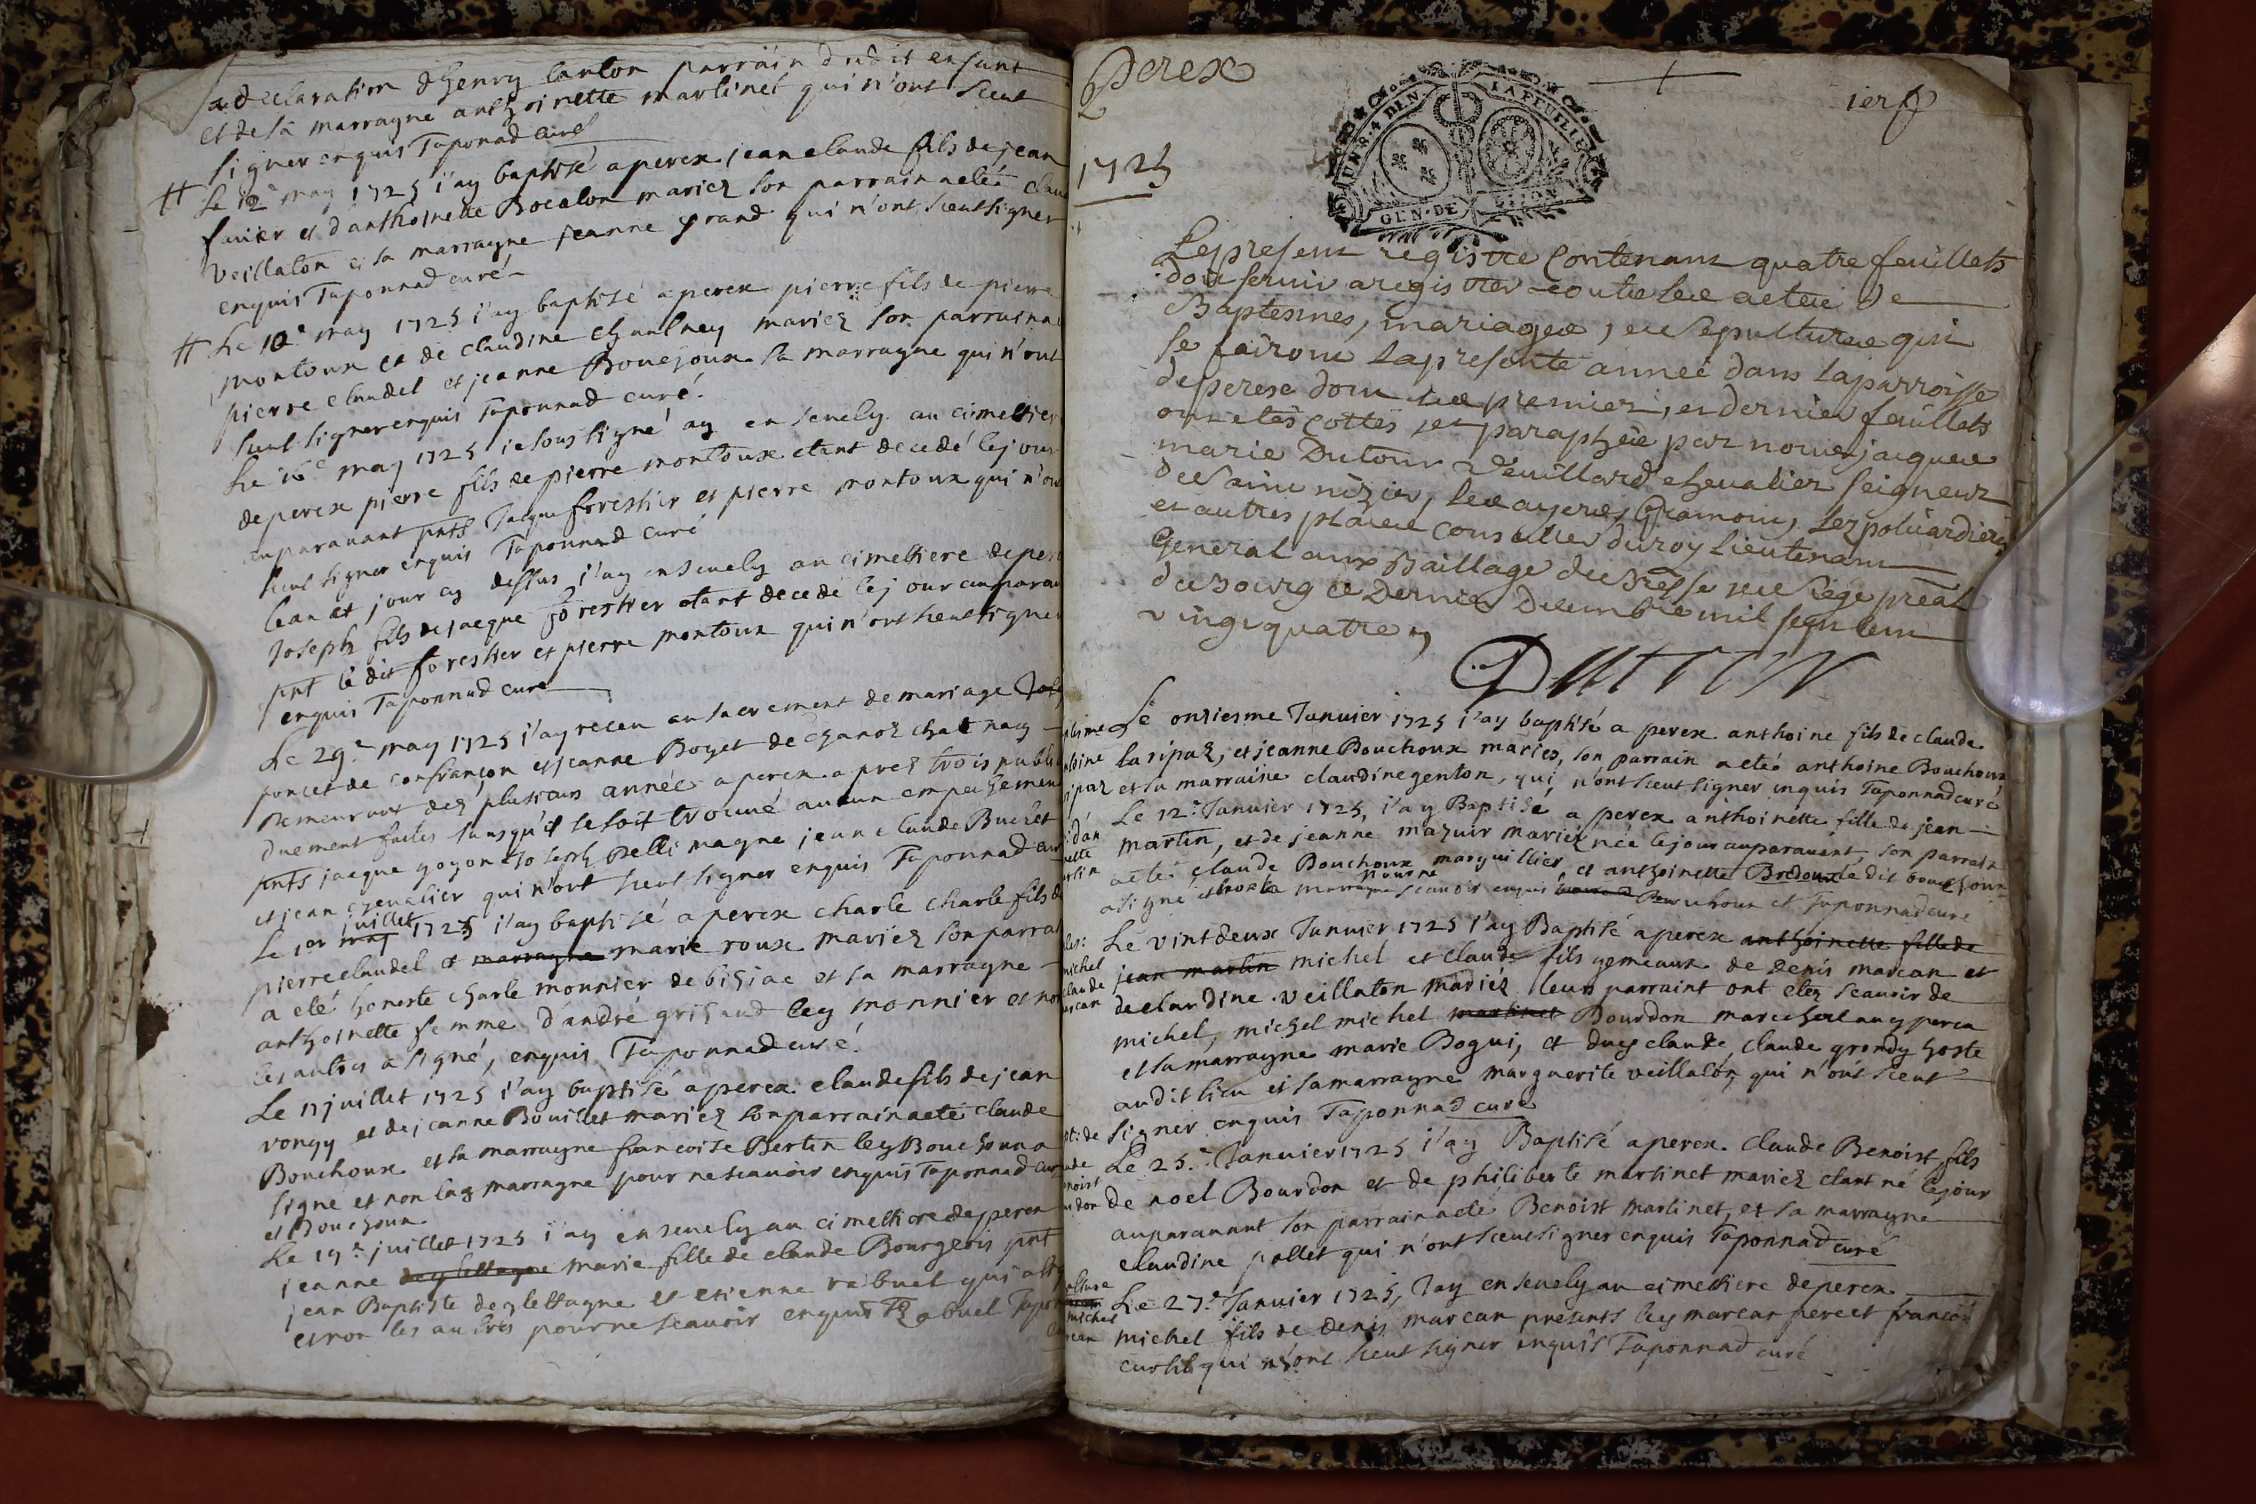 la declaration d'henry lanton parrain dudit enfant
et de sa marragne anthoinette martinet qui n'ont sceut
signer enquis Taponnad curé
Le 12e may 1725 j'ay baptisé a perex jean claude fils de jean
favier et d'anthoinette Bocalon mariez son parrain a eté clau
veillaton et sa marragne jeanne grand qui n'ont sceut signer
enquis Taponnad curé
Le 10e may 1725 j'ay baptisé a perex pierre fils de pierre
montoux et de claudine chaulney mariez son parrain
pierre claudel et jeanne Bouejoux sa marragne qui n'ont
sceut signer enquis Taponnad curé.
Le 16e may 1725 je sousigné ay ensevely au cimettier
de perex pierre fils de pierre montoux etant decedé le jour
auparavant pnts Jacque forestier et pierre montoux qui n'ont
sceut signer enquis Taponnad curé
l'an et jour cy dessus j'ay ensevely au cimettiere de perex
Joseph fils de jacque forestier etant decedé le jour auparau
pnt le dit forestier et pierre montoux qui n'ont sceut signer
enquis Taponnad curé
Le 29e may 1725 j'ay receu au sacrement de mariage
poncet de confrançon et jeanne Boyet de chanoz chatenay
demeurant dez plusieurs années a perex aprez trois publi
duement faites sans qu'il se soit trouvé aucun empechement
pnts jacque goyon Joseph Pellimagne jean claude Buchet
et jean chevalier qui n'ont sceut signer enquis Taponnad curé
juillet
Le 1er may 1725 j'ay baptisé a perex charle charle fils de
pierre claudel et marragne marie roux mariez son parrain
a eté honeste charle monnier de bisiac et sa marragne
anthoinette femme d'andré grisaud ley monnier et non
les autres a signé, enquis Taponnad curé.
Le 11 juillet 1725 j'ay baptisé a perex claude fils de jean
vongy et de jeanne Bouillet mariez son parrain a eté claude
Bouchoux et sa marragne francoise Bertin ley Bouchoux a
signe et non lay marragne pour ne scavoir enquis Taponnad curé
et Bouchoux
Le 19e juillet 1725 j'ay ensevely au cimettiere de perex
jeanne marie fille de claude Bourgeois pnt
jean Baptiste deglettagne et etienne rabuel qui a
et non les autres pour ne scavoir enquis Rabuel
Perex
ier f
UN S. 4 DEN. LA FEUILLE
GEN. DE LYON
1725
Le present registre Contenant quatre feuillets
doit servir a registrer toutes les actes de
Baptesmes, mariages, et sepultures qui
se fairont la presente année dans la parroisse
de perex dont les premier, et dernier feuillets
ont etés cottés et paraphés par nous jacques
marie Dutour Veuillard chevalier seigneur
de Saint nizier, les ayeres, Gramont, les poliardieres
et autres places conseiller du roy lieutenant
General aux Baillage de Bresse et Siege préal
de Bourg ce Dernier decembre mil sept cent
vingt quatre
Dutour
Le onziesme Janvier 1725 j'ay baptisé a perex anthoine fils de claude
la ripaz, et jeanne Bouchoux mariés, son parrain a eté anthoine Bouchoux
et sa marraine claudine genton, qui n'ont sceut signer inquis Taponnad curé
Le 12e Janvier 1725, j'ay Baptisé a perex anthoinette fille de jean
martin, et de jeanne mazuir mariez née le jour auparavant, son parrain
a eté claude Bouchoux marguillier, et anthoinette Bredoux le dit bouchoux
a signé et non la marragne pour ne scavoir enquis Bouchoux et Taponnad curé
Le vint deux Janvier 1725 j'ay Baptisé a perex anthoinette fille de
jean martin michel et claude fils gemeaux de denis marcan et
de clardine veillaton mariéz leurs parraint ont etez scauoir de
michel, michel michel martinet Bourdon marechal aug perex
et sa marragne marie Bogui, et duy claude, claude grandy hoste
audit lieu et sa marragne marguerite veillaton, qui n'ont sceut
signer enquis Taponnad curé
Le 25e Janvier 1725 j'ay Baptisé a perex claude Benoist fils
de noel Bourdon et de philiberte martinet mariez etant né le jour
auparavant son parrain a eté Benoist martinet, et sa marragne
claudine pollet qui n'ont sceut signer enquis Taponnad curé
Le 27e Janvier 1725, J'ay ensevely au cimettiere de perex
michel fils de denis marcan presents ley marcan pere et francois
curtil qui n'ont sceut signer enquis Taponnad curé